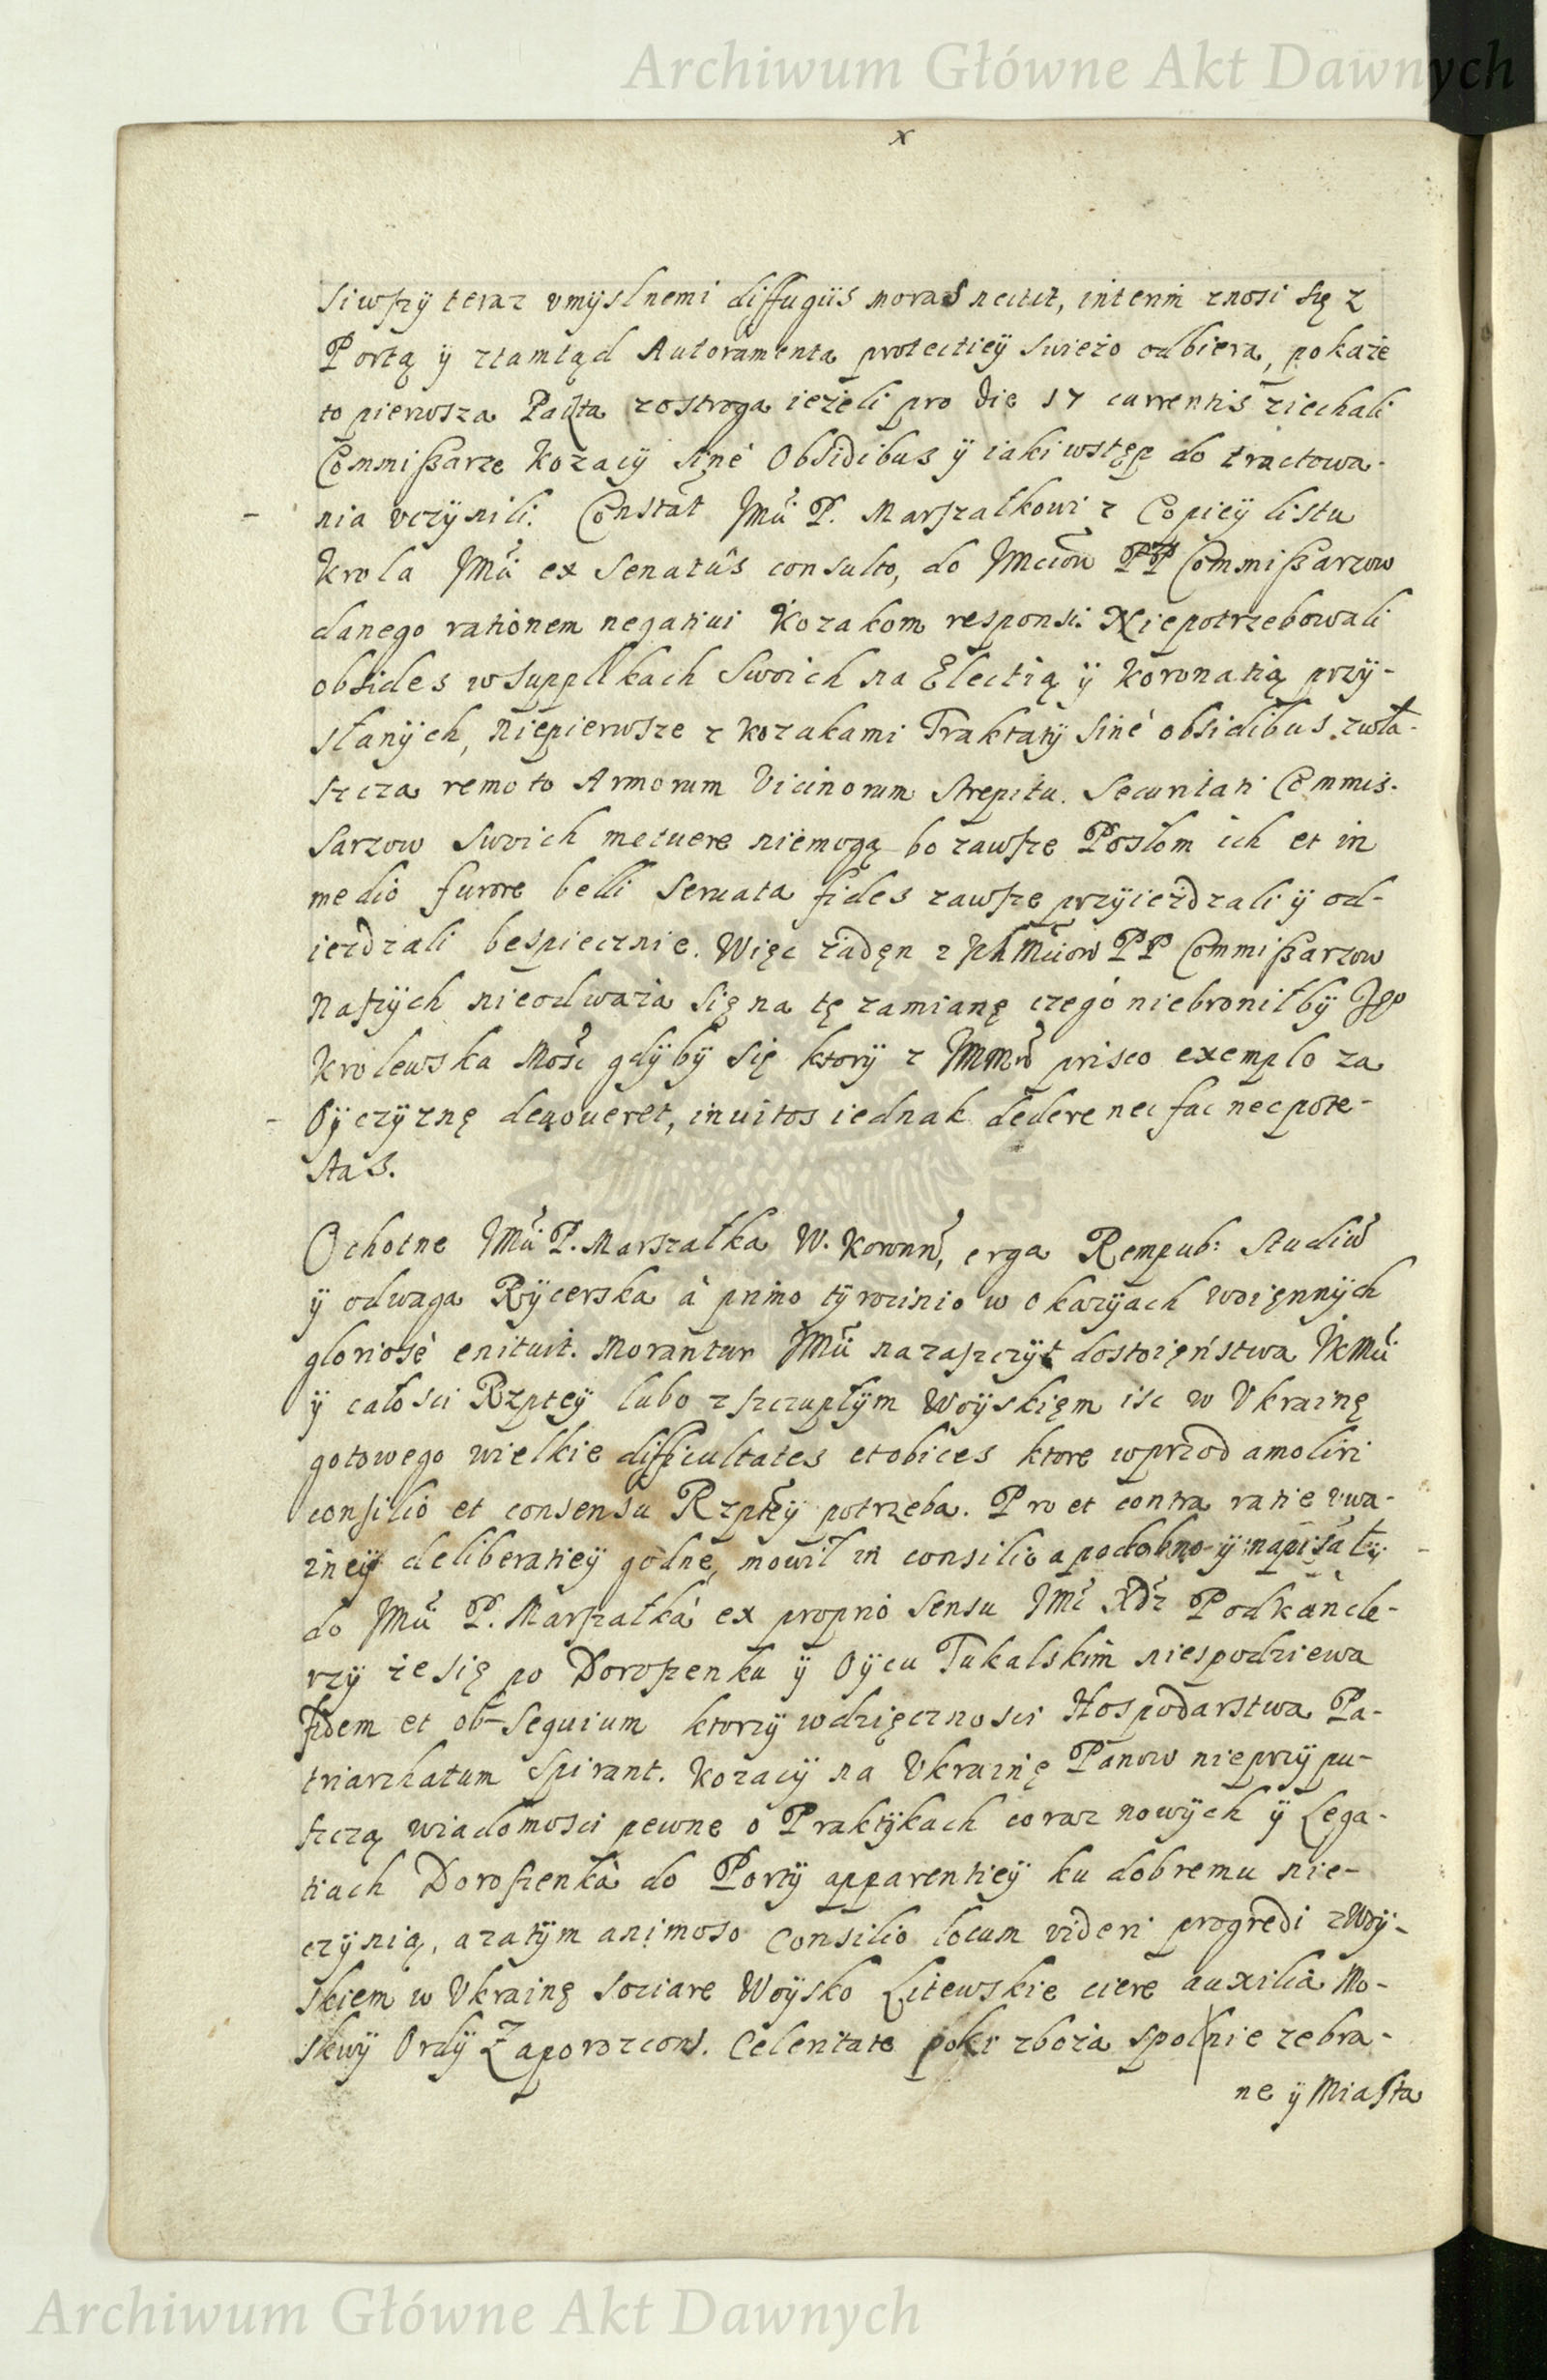 Archiwum Główne Akt Dawnych
x
siwszÿ teraz vmÿslnemi diffugiis moras nectit, interim znosi się z
Portą ÿ ztamtąd Autoramenta protectieÿ swieżo odbiera, pokaże
to pierwsza Paczta zostroga ieżeli pro die 17 currentis ziechali
Commissarze Kozacÿ sine Obsidibus ÿ iaki wstęp do tractowa-
nia vczÿnili. Constat JMci P. Marszałkowi z Copieÿ listu
Krola JMci ex Senatûs consulto, do Jmciow PP Commissarzow
danego rationem negatiui Kozakom responsi. Niepotrzebowali
obsides w supplikach swoich na Electią ÿ Koronatią przÿ-
słanÿch, niepierwsze z Kozakami Traktatÿ sine obsidibus zwła-
szcza remoto Armorum Vicinorum strepitu. Securitati Commis-
sarzow swoich metuere niemogą bo zawsze Posłom ich et in
medio furore belli seruata fides zawsze przÿieżdzali ÿ od-
iezdzali bespiecznie. Więc żadęn z JchMciow PP Commissarzow
Naszÿch nieodważa się na tę zamianę czego niebroniłbÿ Jego
Krolewska Mość gdÿbÿ się ktorÿ z prisco exemplo za
Oÿczÿznę deuoueret, inuitos iednak dedere nec fas nec pote-
stas.
Ochotne JMci P. Marszałka W. Koronn, erga Rempub: studiu
ÿ odwaga Rÿcerska à primo tÿrocinio w okazÿach woięnnÿch
gloriosè enituit. Morantur JMci na zaszczÿt dostoięństwa JKMci
ÿ całosci Rzpteÿ lubo z szczupłÿm Woÿskięm isc w Vkrainę
gotowego wielkie difficultates et obices ktore wprzod amoliri
consilio et consensu Rzpteÿ potrzeba. Pro et contra ratie vwa-
żneÿ deliberatieÿ godne, mowił in consilio a podobno ÿ napisał
do JMci P. Marszałka ex proprio sensu JMc Xdz Podkancle-
rzÿ że się po Doroszenku ÿ Oÿcu Tukalskim niespodziewa
fidem et ob-sequium ktorzÿ wdzięcznosci Hospodarstwa Pa-
triarchatum spirant. Kozacÿ na Vkrainę Panow nieprzÿpu-
szczą wiadomosci pewne o Praktÿkach coraz nowÿch ÿ Lega-
tiach Doroszenka do Portÿ apparentieÿ ku dobremu nie-
czÿnią, a zatÿm animoso Consilio locum videri progredi z Woÿ-
skiem w Vkrainę sociare Woÿsko Litewskie ciere auxilia Mo-
skwÿ Ordÿ Zaporozcow. Celeritate poki zboża społnie zebra-
ne ÿ Miasta
Archiwum Główne Akt Dawnych